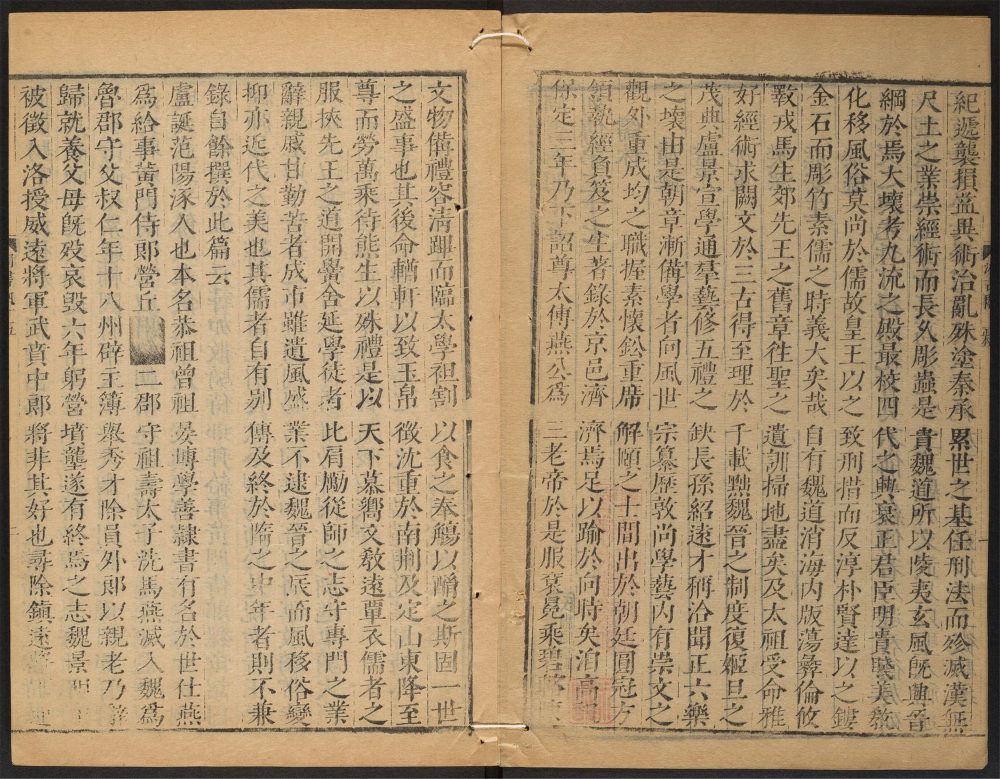 紀遞襲損益異術治亂殊塗秦承累世之基任刑法而殄滅漢無
尺土之業崇經術而長久彫蟲是貴魏道所以陵夷玄風旣興晉
綱於焉大壞考九流之殿最校四代之興衰正君臣明貴賤美敎
化移風俗莫尚於儒故皇王以之致刑措而反淳朴賢達以之鏤
金石而彫竹素儒之時義大矣哉自有魏道消海內版蕩彝倫攸
斁戎馬生郊先王之舊章徃聖之遺訓掃地盡矣及太祖受命雅
好經術求闕文於三古得至理於千載黜魏晉之制度復姬旦之
茂典盧景宣學通羣藝修五禮之缺長孫紹遠才稱洽聞正六樂
之壞由是朝章漸備學者向風世宗纂歷敦尚學藝內有崇文之
觀外重成均之職握素懷鈆重席解頤之士間出於朝廷圓冠方
領執經負笈之生著錄於京邑濟濟焉足以踰於向時矣洎高
保定三年乃下詔尊太傅燕公爲三老帝於是服袞冕乘碧輅
文物備禮容清蹕而臨太學袒割以食之奉觴以酳之斯固一世
之盛事也其後命輶軒以致玉帛徵沈重於南荆及定山東降至
尊而勞萬乘待熊生以殊禮是以天下慕嚮文敎遠覃衣儒者之
服挾先王之道開黌舍延學徒者比肩勵從師之志守專門之業
辭親戚甘勤苦者成市雖遺風盛業不逮魏晉之辰而風移俗變
抑亦近代之美也其儒者自有別傳及終於隋之史年者則不兼
錄自餘撰於此篇云
盧誕范陽涿人也本名恭祖曾祖晏博學善隸書有名於世仕燕
爲給事黃門侍郎營丘二郡守祖壽太子洗馬燕滅入魏爲
魯郡守父叔仁年十八州辟主簿舉秀才除員外郎以親老乃辭
歸就養父母旣歿哀毀六年躬營墳壟遂有終焉之志魏景
被徵入洛授威遠將軍武賁中郎將非其好也尋除鎮遠